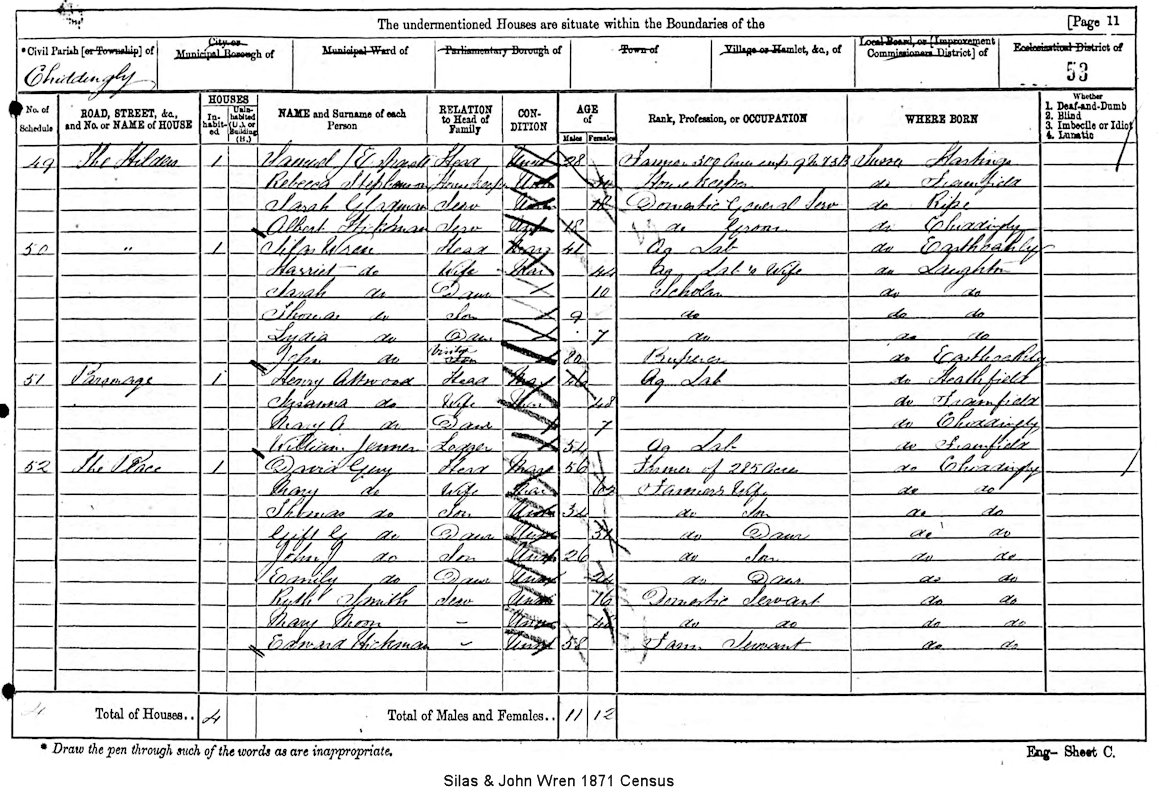 The undermentioned Houses are situate within the Boundaries of the
[Page 11
*Civil Parish [or Township] of
City or Municipal Borough of
Municipal Ward of
Parliamentary Borough of
Town of
Village or Hamlet, &c., of
Local Board, or [Improvement Commissioners District] of
Ecclesiastical District of
Chiddingly
53
No. of Schedule
ROAD, STREET, &c., and No. or NAME of HOUSE
HOUSES
In-habit-ed
Unin-habited (U.), or Building (B.)
NAME and Surname of each Person
RELATION to Head of Family
CON-DITION
AGE of
Males
Females
Rank, Profession, or OCCUPATION
WHERE BORN
Whether
1. Deaf-and-Dumb
2. Blind
3. Imbecile or Idiot
4. Lunatic
49 The 1 Samuel Head 28 Farmer 300 Sussex Hastings
Rebecca Housekeeper Housekeeper do Framfield
Sarah Serv 18 Domestic General Serv do Ripe
Albert Hickman Serv 18 do Groom do Chiddingly
50 " 1 Silas Wren Head Mar 41 Ag Lab do
Harriet do Wife Mar 44 Ag Lab's Wife do Laughton
Sarah do Daur 10 Scholar do do
Thomas do Son 9 do do do
Lydia do Daur 7 do do do
John do 80 do
51 Parsonage 1 Henry Attwood Head Mar 46 Ag Lab do Heathfield
Susanna do Wife Mar 48 do Framfield
Mary A do Daur 7 do Chiddingly
William Jenner Lodger 54 Ag Lab do Framfield
52 The Place 1 David Guy Head Mar 56 Farmer of 285 Acres do Chiddingly
Mary do Wife Mar 62 Farmers Wife do do
Thomas do Son Unm 34 do Son do do
do Daur Unm 31 do Daur do do
John J do Son Unm 26 do Son do do
Emily do Daur Unm 24 do Daur do do
Ruth Smith Serv Unm 16 Domestic Servant do do
Mary Moon - Unm 48 do do do do
Edward Hickman - Unm 58 Farm Servant do do
4 Total of Houses.. 4 Total of Males and Females.. 11 12
* Draw the pen through such of the words as are inappropriate.
Eng- Sheet C.
Silas & John Wren 1871 Census